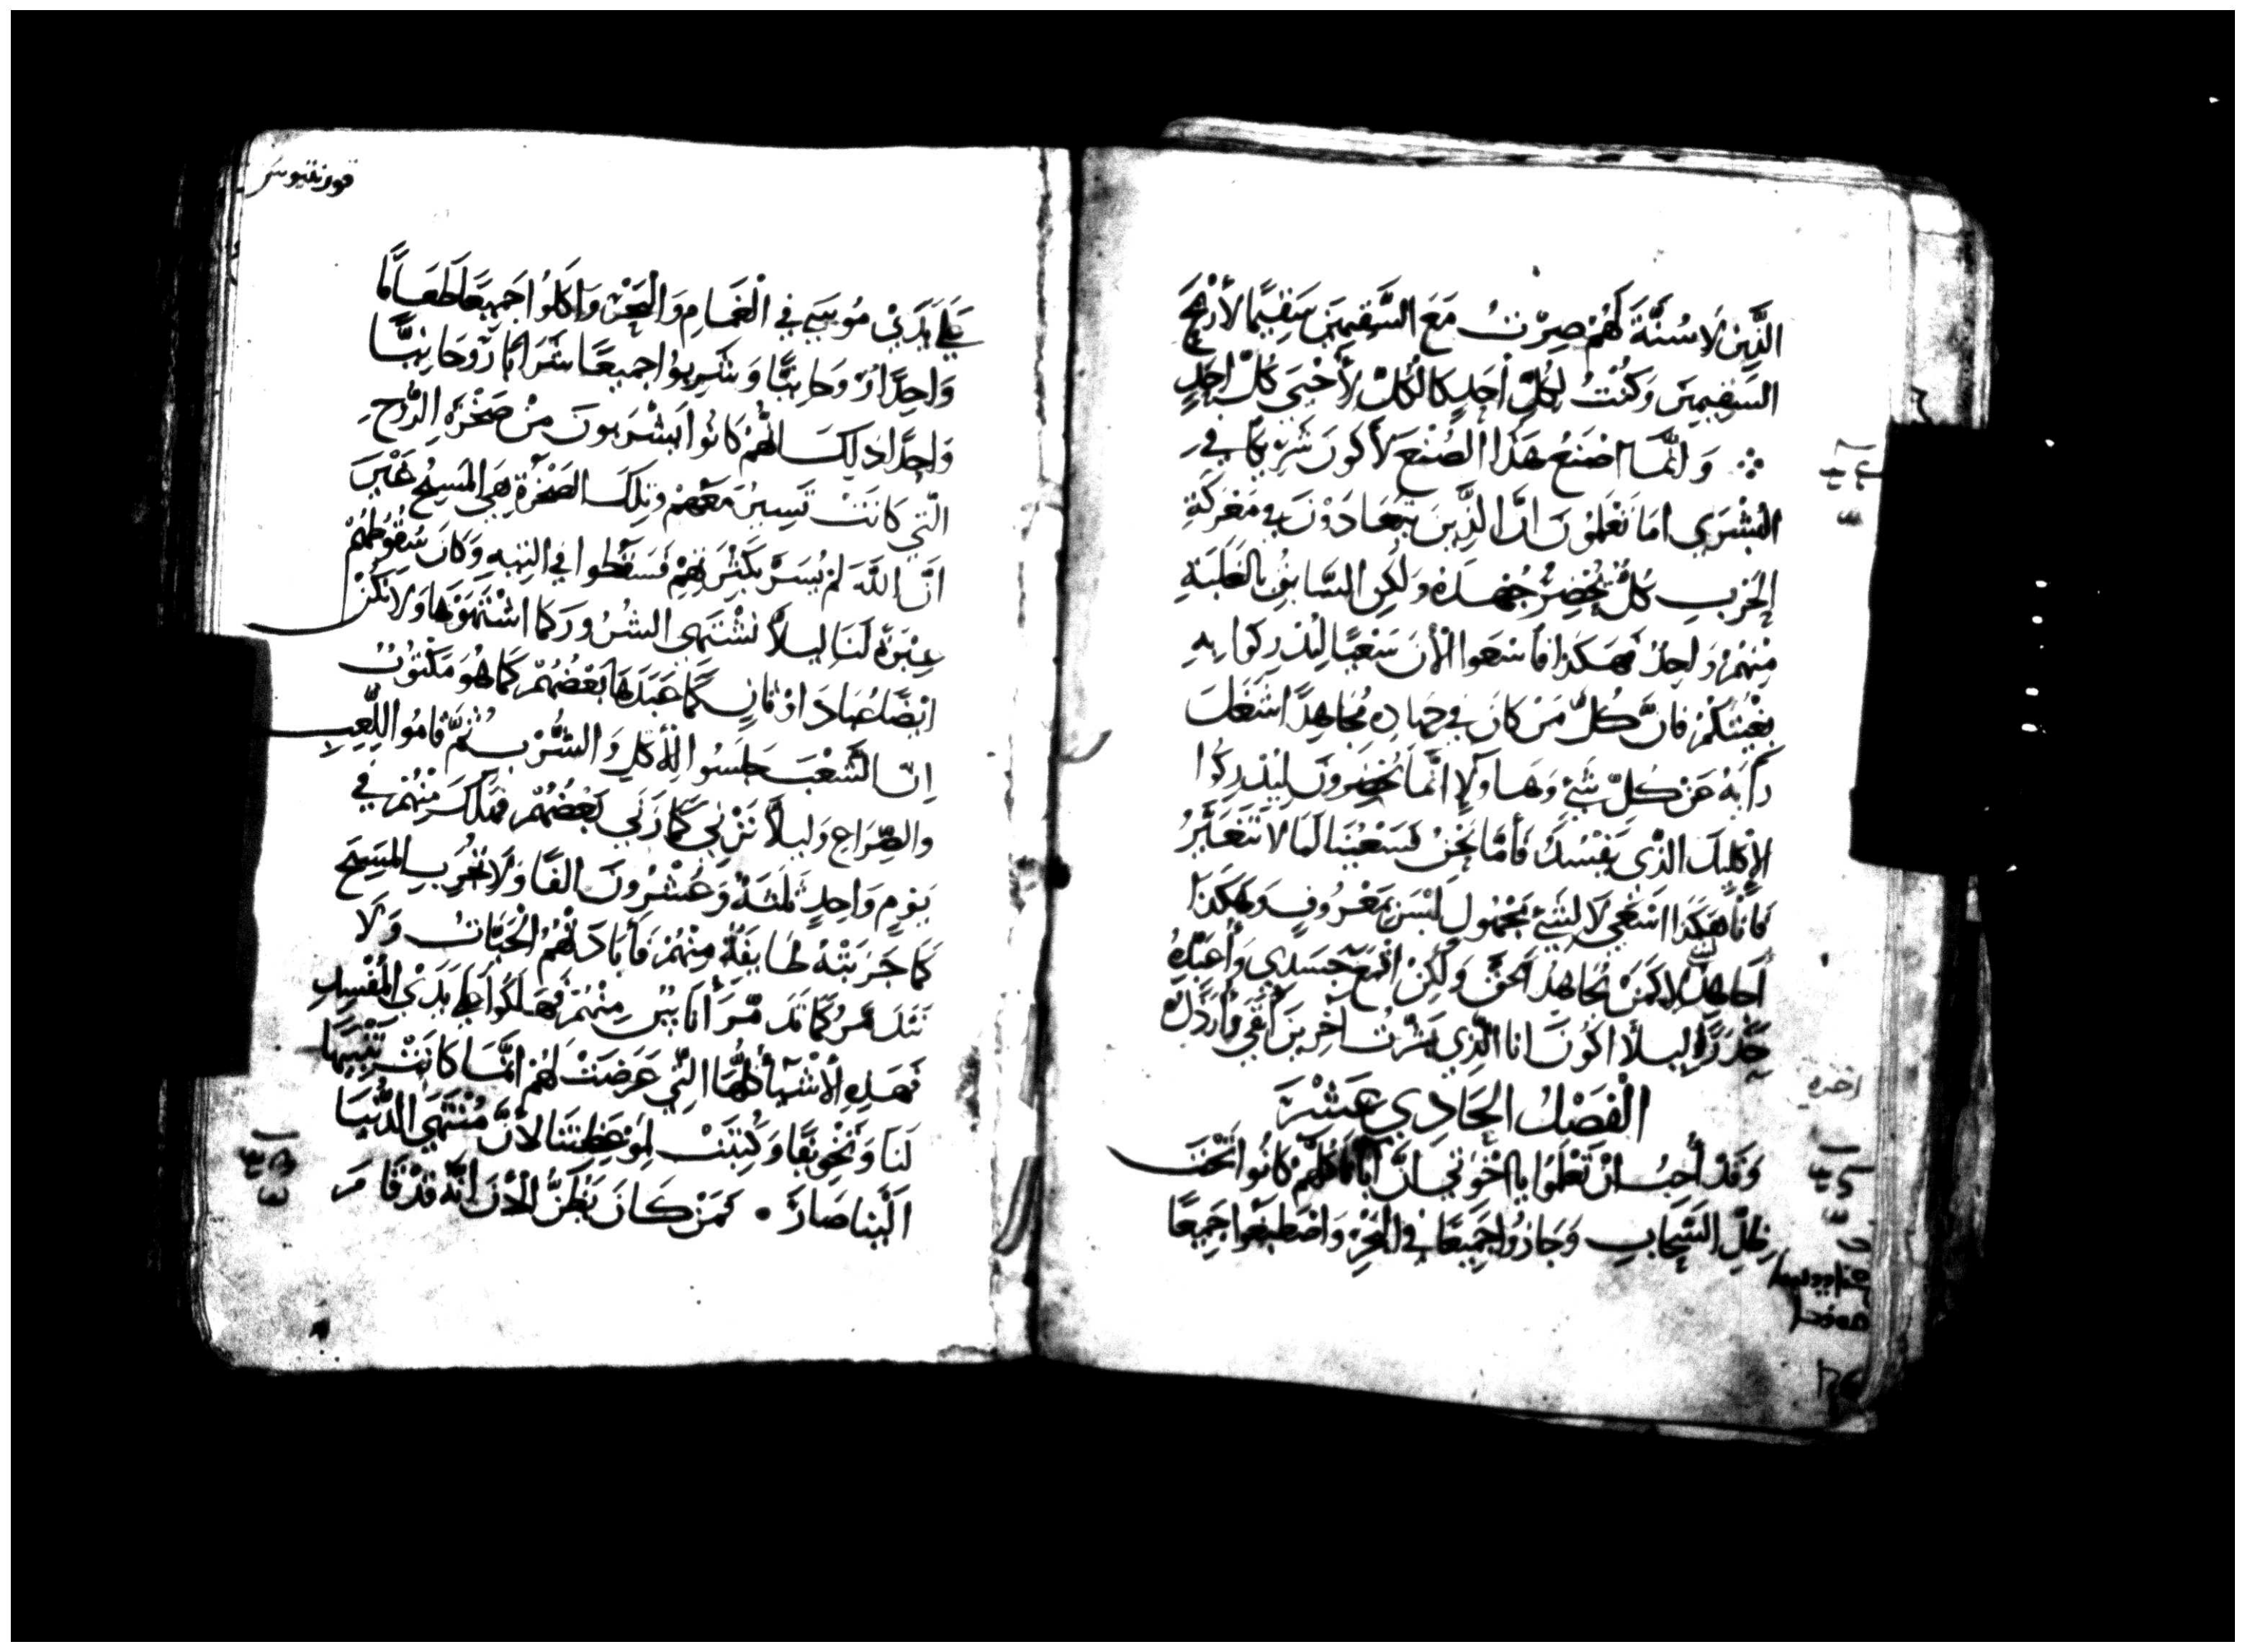 الَّذِينَ لَا سُنَّةَ لَهُمْ صِرْتُ مَعَ السَّقِيمِينَ سَقِيمًا لأَرْبَحَ
السَّقِيمِينَ وَكُنْتُ لِكُلِّ أَحَدٍ كَالْكُلِّ لأُحْيِيَ كُلَّ أَحَدٍ
وَإِنَّمَا اصْنَعُ هَذَا الصُّنْعَ لأَكُونَ شَرِيكًا فِي
الْبُشْرَى امَا تَعْلَمُونَ انَّ الَّذِينَ يَتَعَادَوْنَ فِي مَعْرَكَةِ
الحَرْبِ كُلٌّ يُحْضِرُ جُهْدَهُ وَلَكِنِ السَّابِقُ بِالغَلَبَةِ
مِنْهُمْ وَاحِدٌ فَهَكَذَا فَاسْعَوا الْأنَ سَعْيًا لِتُدْرِكُوا بِهِ
بِغْيَتَكُمْ فَانَّ كُلَّ مَنْ كَانَ فِي جِهَادٍ مُجَاهِدًا اشْغَلَ
دَأبَهُ عَنْ كُلِّ شَيْءٍ وَهَاوِلَاءِ انَّمَا يُحْضِرُونَ لِيُدْرِكُوا
الإِكْلِيلَ الَّذِي يَفْسُدُ فَأَمَّا نَحْنُ فَسَعْيُنَا لِمَا لَا يَتَغَيَّرُ
فَأَنَا هَكَذَا اسْعَى لَا لِشَيْءٍ مَجْهُولٍ لَيْسَ بِمَعْرُوفٍ وَهَكَذَا
أُجَاهِدُ لَا كَمَنْ يُجَاهِدُ الْجَوَّ وَلَكِنْ اقْمَعُ جَسَدِي وَأُعَبِّدُهُ
حَذَرًا لِيلَأ اكُونَ انَا الَّذِي بَشَّرْتُ اخَرِينَ أَبْقَى مَرْذُولًا
الْفَصْلُ الحَادِي عَشَرَ
وَقَدْ أُحِبُّ انْ تَعْلَمُوا يَا اخْوَتِي انَّ آبَاءَنَا كُلَّهُمْ كَانُوا تَحْتَ
ظِلِّ السَّحَابِ وَجَازُوا جَمِيعًا فِي الْبَحْرِ وَاصْطَبَغُوا جَمِيعًا
اخره
قورنتيوس
عَلَى يَدَيْ مُوسَى فِي الْغَمَامِ وَالْبَحْرِ وَاكَلُوا جَمِيعًا طَعَامًا
وَاحِدًا رُوحَانِيًّا وَشَرِبُوا جَمِيعًا شَرَابًا رُوحَانِيًّا
وَاحِدًا ذَلِكَ انَّهُمْ كَانُوا يَشْرَبُونَ مِنْ صَخْرَةِ الرُّوحِ
الَّتِي كَانَتْ تَسِيرُ مَعَهُمْ وَتِلْكَ الصَّخْرَةُ هِيَ الْمَسِيحُ غَيْرَ
انَّ اللَّهَ لَمْ يُسَرَّ بِكَثْرَتِهِمْ فَسَقَطُوا فِي التِّيهِ وَكَانَ سُقُوطُهُمْ
عِبْرَةً لَنَا لِيلَأ نَشْتَهِيَ الشُّرُورَ كَمَا اشْتَهَوْهَا وَلَا نَكُنْ
ايْضًا عُبَّادَ اوْثَانٍ كَمَا عَبَدَهَا بَعْضُهُمْ كَمَا هُوَ مَكْتُوبٌ
إِنَّ الشَّعْبَ جَلَسُوا لِلأَكْلِ وَالشُّرْبِ ثُمَّ قَامُوا لِلَّعِبِ
وَالصِّرَاعِ وَلِيلَأ نَزْنِيَ كَمَا زَنَى بَعْضُهُمْ فَهَلَكَ مِنْهُمْ فِي
يَوْمٍ وَاحِدٍ ثَلَثَةٌ وَعُشْرُونَ الفًا وَلَا نُجَرِّبِ الْمَسِيحَ
كَمَا جَرَبَتْهُ طَايِفَةٌ مِنْهُمْ فَأَبَادَتْهُمُ الْحَيَّاتُ وَلَا
نَتَذَمَّرُ كَمَا تَذَمَّرَ أُنَاسٌ مِنْهُمْ فَهَلَكُوا عَلَى يَدَيْ الْمُفْسِدِ
فَهَذِهِ الأَشْيَأُ كُلُّهَا الَّتِي عَرَضَتْ لَهُمْ انَّمَا كَانَتْ تَنْبِيهًا
لَنَا وَتَخْوِيفًا وَكُتِبَتْ لِمَوْعِظَتِنَا لأَنَّ مُنْتَهَى الدُّنْيَا
الَيْنَا صَارَ • فَمَنْ كَانَ يَظُنُّ الْأنَ انَّهُ قَدْ قَامَ